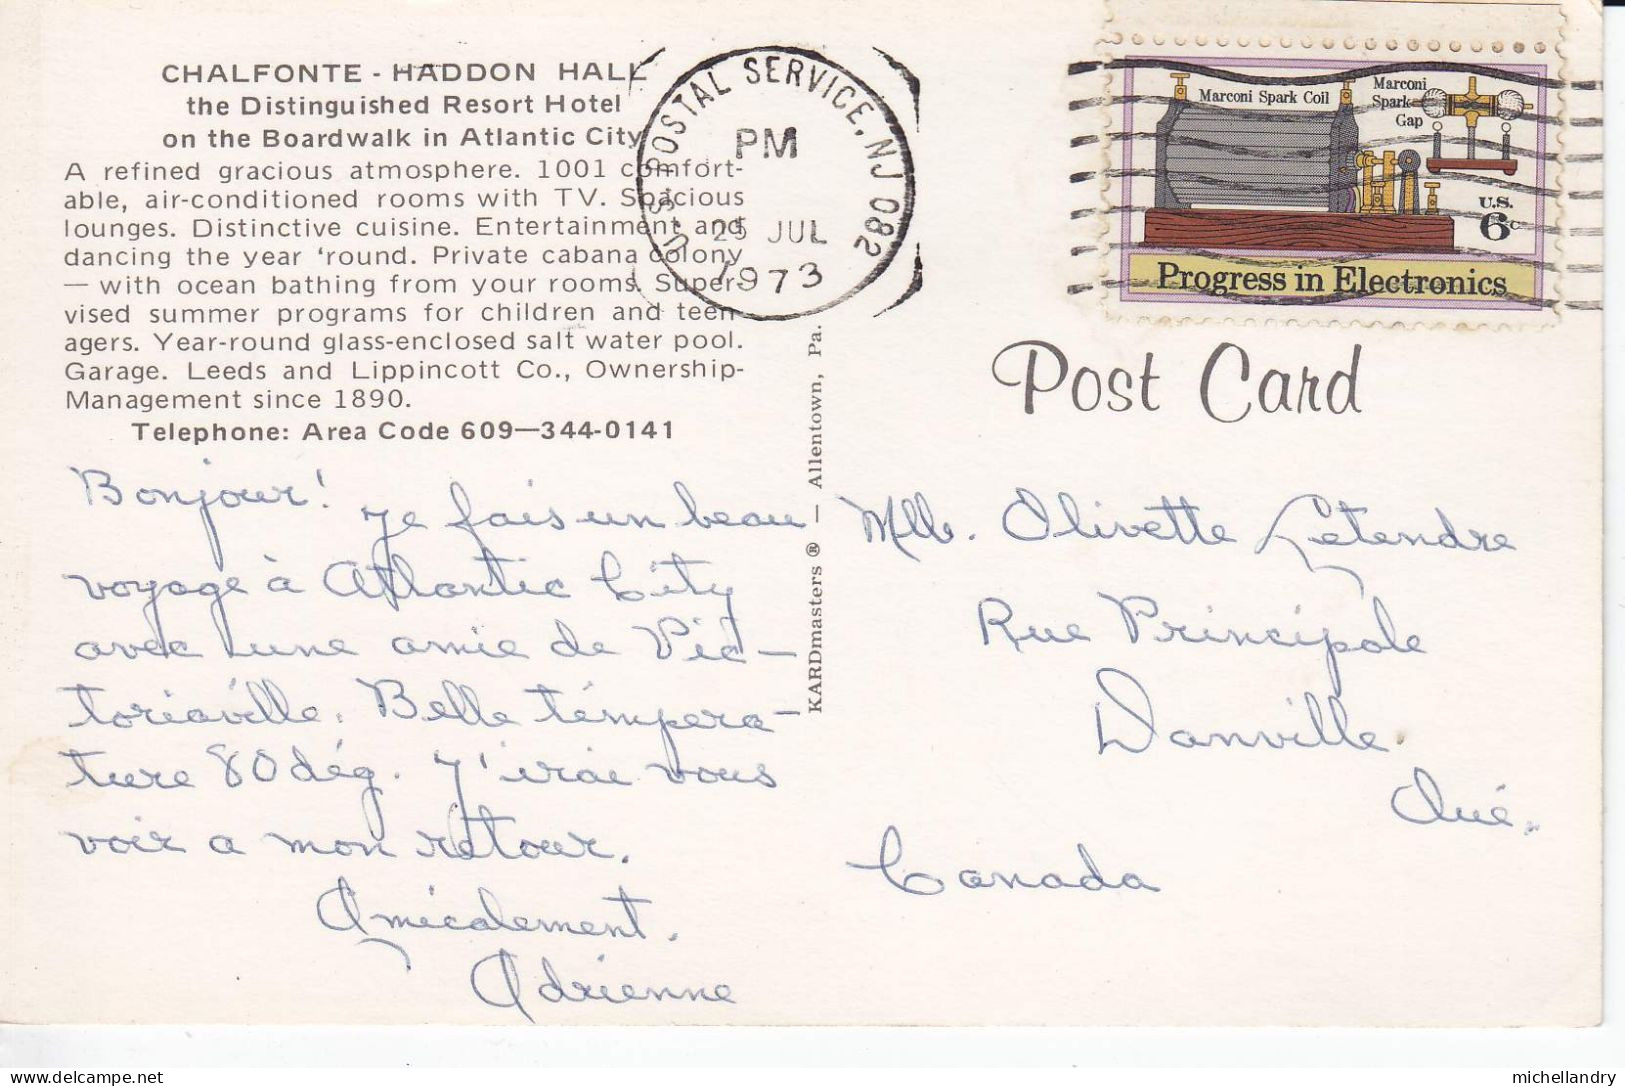 CHALFONTE - HADDON HALL
the Distinguished Resort Hotel
on the Boardwalk in Atlantic City
A refined gracious atmosphere. 1001 comfort-
able, air-conditioned rooms with TV. Spacious
lounges. Distinctive cuisine. Entertainment and
dancing the year ‘round. Private cabana colony
— with ocean bathing from your rooms. Super-
vised summer programs for children and teen
agers. Year-round glass-enclosed salt water pool.
Garage. Leeds and Lippincott Co., Ownership-
Management since 1890.
Telephone: Area Code 609—344-0141
Bonjour! Je fais un beau
voyage à Atlantic City
avec une amie de Vic-
toriaville. Belle témpera-
ture 80 dég. J'irai vous
voir a mon retour.
Amicalement.
Adrienne
KARDmasters ® — Allentown, Pa.
U.S. POSTAL SERVICE, NJ 082
PM
25 JUL
1973
Marconi Spark Coil
Marconi
Spark
Gap
U.S.
6c
Progress in Electronics
Post Card
Mlle. Olivette Letendre
Rue Principale
Danville.
Qué.
Canada
www.delcampe.net
michellandry